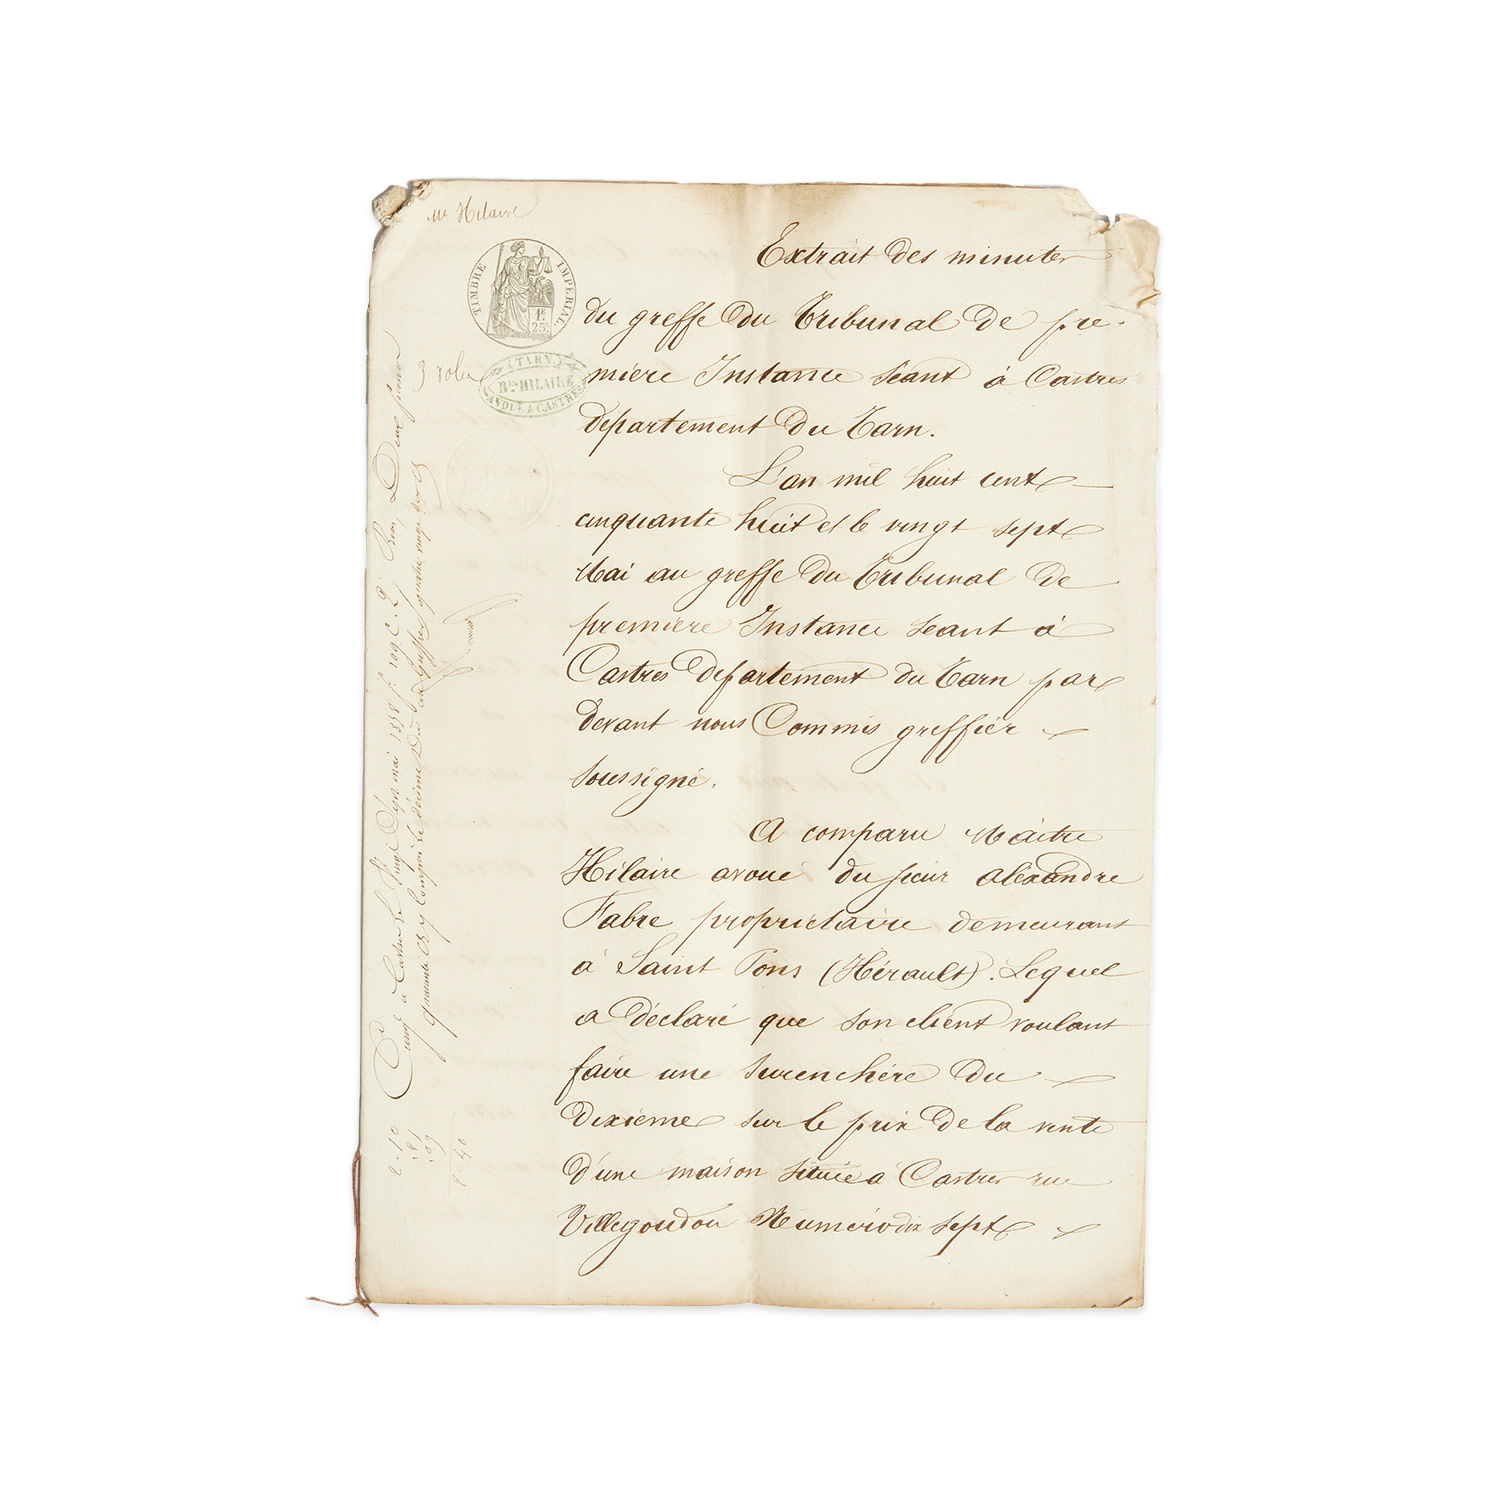 Me Hilaire
TIMBRE IMPERIAL
1F
25c
3 roles
(TARN)
Bin HILAIRE
AVOUÉ A CASTRES
Extrait des minutes
du greffe du Tribunal de pre-
mière Instance séant à Castres
département du Tarn.
L'an mil huit cent
cinquante huit et le vingt sept
Mai au greffe du Tribunal de
première Instance séant à
Castres département du Tarn par
devant nous Commis greffier
soussigné.
A comparu Maître
Hilaire avoué du sieur Alexandre
Fabre propriétaire demeurant
à Saint Pons (Hérault). Lequel
a déclaré que son client voulant
faire une surenchère du
dixième sur le prix de la vente
d'une maison située a Castres rue
Villegoudou Numéro dix sept
à Castres le Vingt Sept mai 1858 f. 109 C. 2 Deux francs
quarante y compris le décime Dû au greffier quatre vingt
2.10
.81
.09
2.40